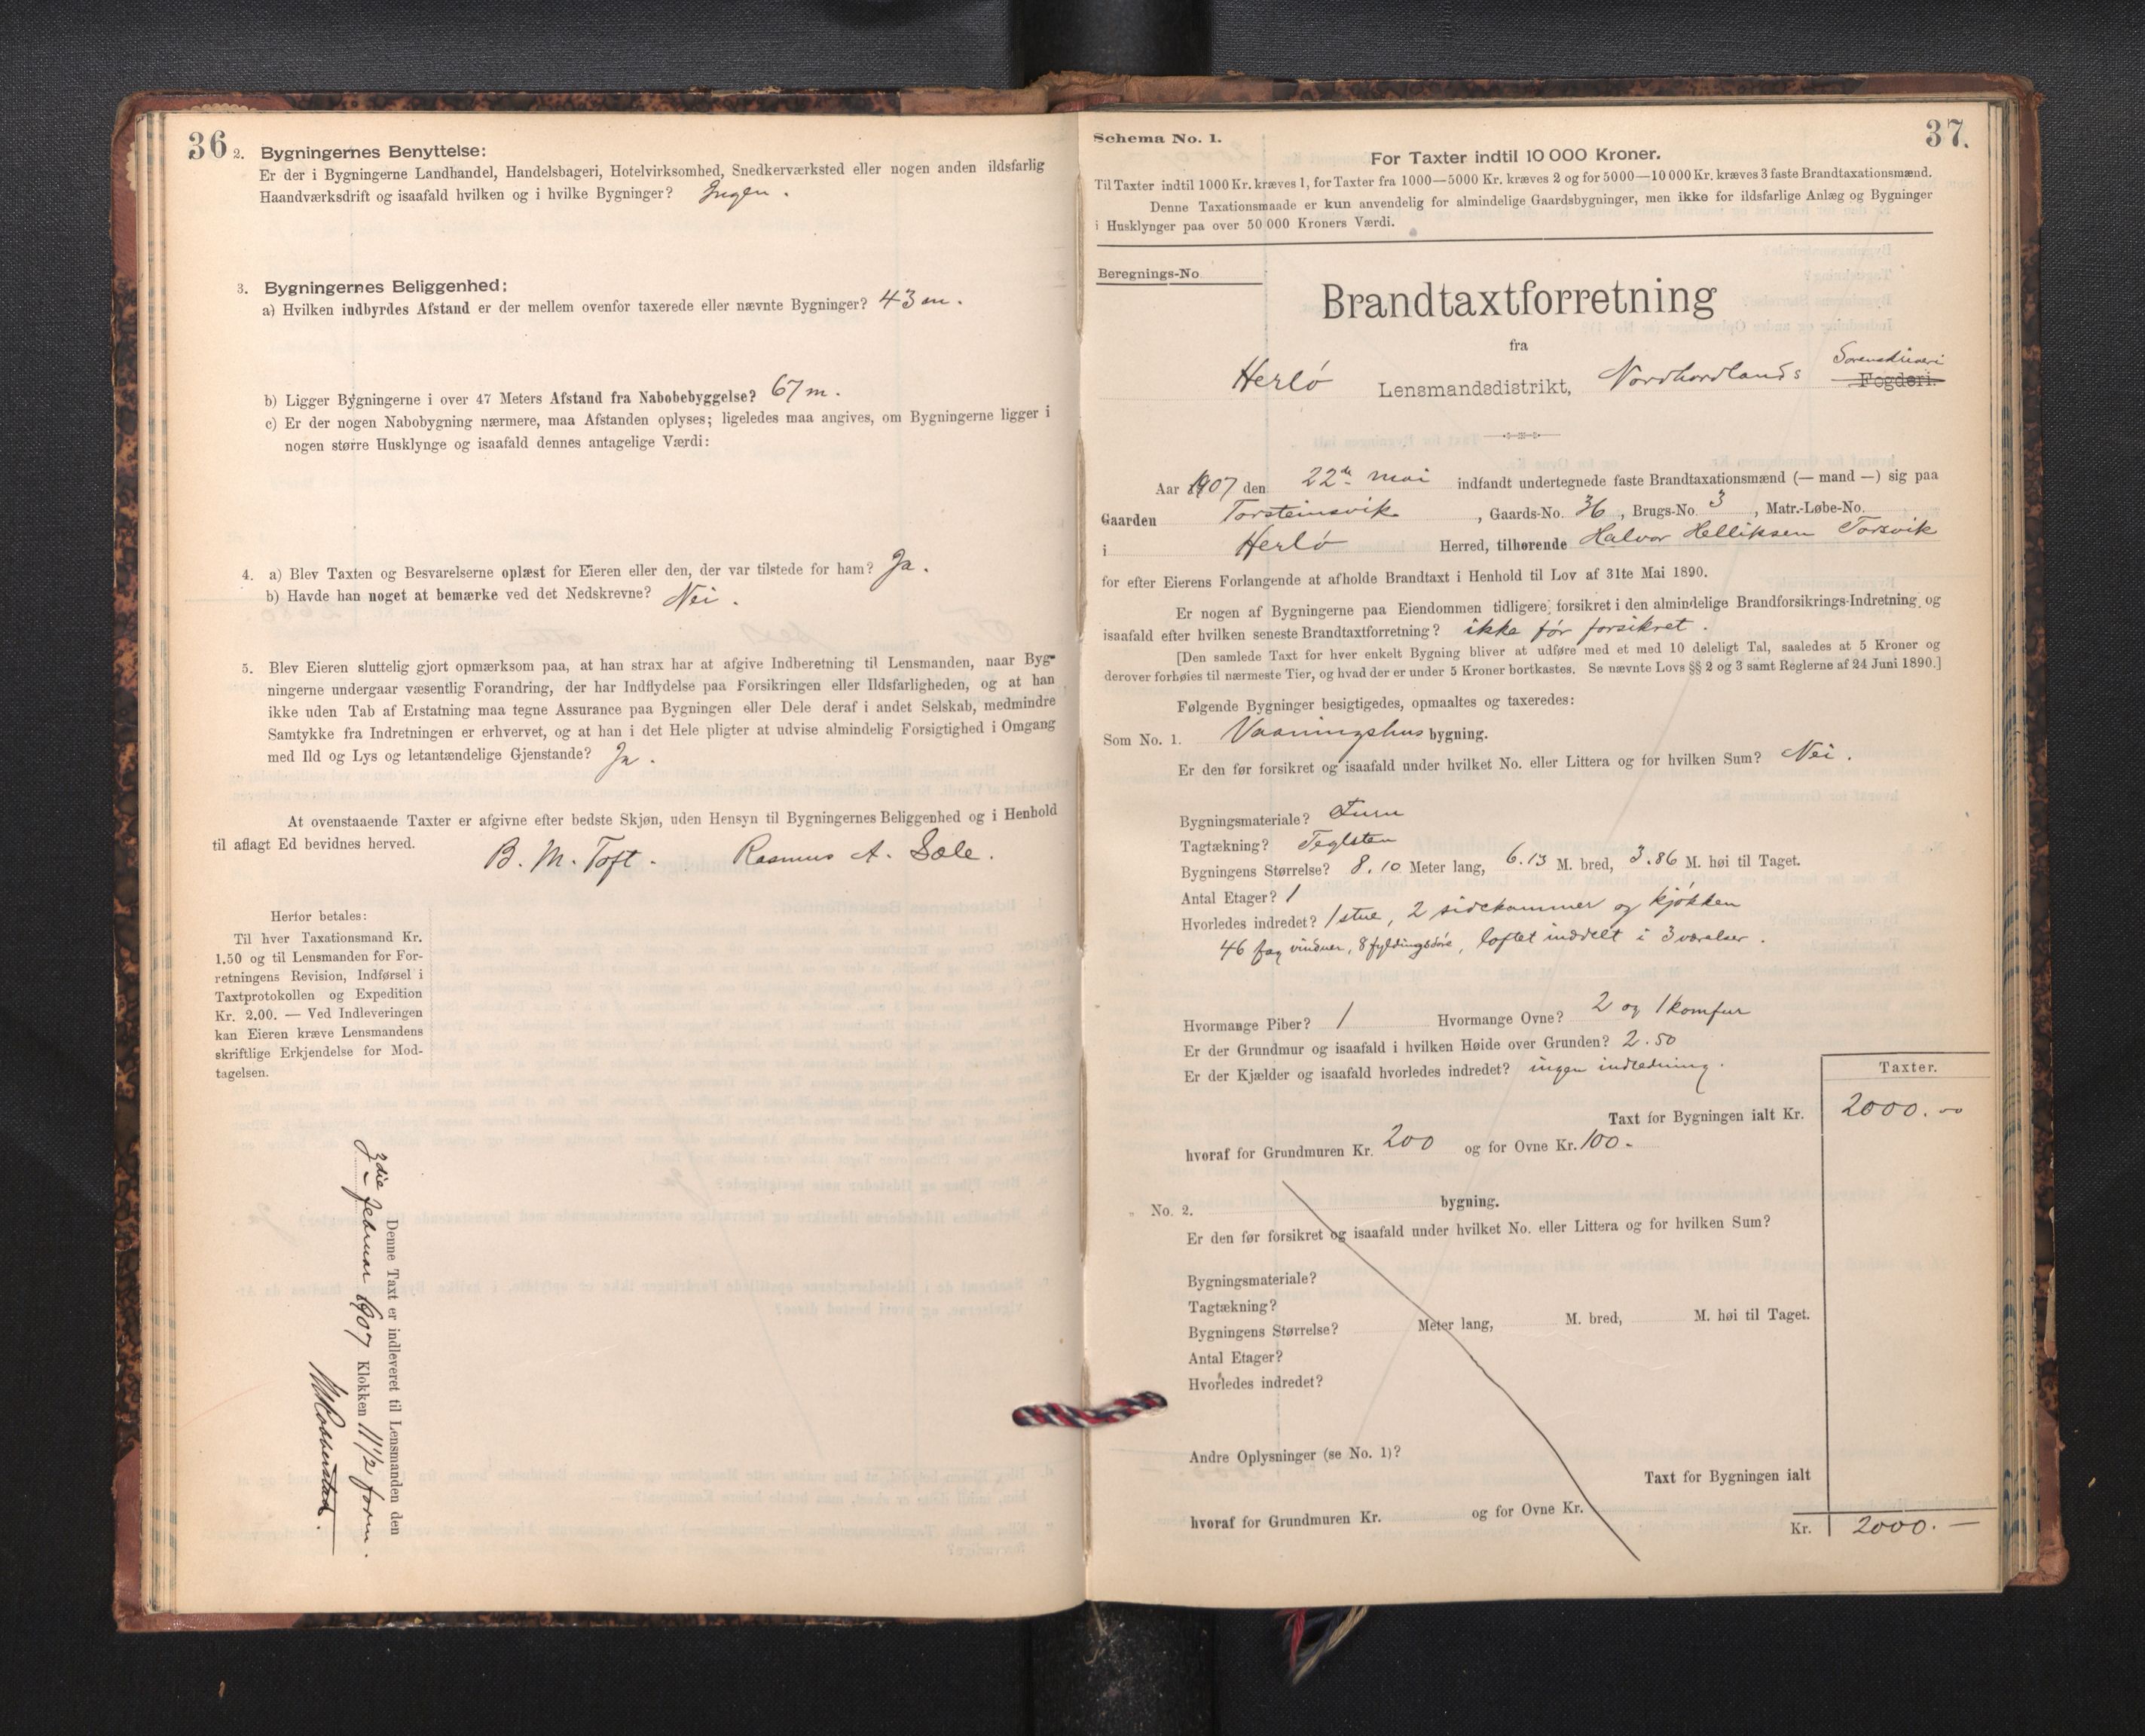 36
2. Bygningernes Benyttelse:
Er der i Bygningerne Landhandel, Handelsbageri, Hotelvirksomhed, Snedkerværksted eller nogen anden ildsfarlig
Haandværksdrift og isaafald hvilken og i hvilke Bygninger? Ingen.
3. Bygningernes Beliggenhed:
a) Hvilken indbyrdes Afstand er der mellem ovenfor taxerede eller nævnte Bygninger? 43 m.
b) Ligger Bygningerne i over 47 Meters Afstand fra Nabobebyggelse? 67 m.
c) Er der nogen Nabobygning nærmere, maa Afstanden oplyses; ligeledes maa angives, om Bygningerne ligger i
nogen større Husklynge og isaafald dennes antagelige Værdi:
4. a) Blev Taxten og Besvarelserne oplæst for Eieren eller den, der var tilstede for ham? Ja.
b) Havde han noget at bemærke ved det Nedskrevne? Nei.
5. Blev Eieren sluttelig gjort opmærksom paa, at han strax har at afgive Indberetning til Lensmanden, naar Byg-
ningerne undergaar væsentlig Forandring, der har Indflydelse paa Forsikringen eller Ildsfarligheden, og at han
ikke uden Tab af Erstatning maa tegne Assurance paa Bygningen eller Dele deraf i andet Selskab, medmindre
Samtykke fra Indretningen er erhvervet, og at han i det Hele pligter at udvise almindelig Forsigtighed i Omgang
med Ild og Lys og letantændelige Gjenstande? Ja.
At ovenstaaende Taxter er afgivne efter bedste Skjøn, uden Hensyn til Bygningernes Beliggenhed og i Henhold
til aflagt Ed bevidnes herved.
B. M. Toft. Rasmus A. Sæle.
Herfor betales:
Til hver Taxationsmand Kr.
1.50 og til Lensmanden for For-
retningens Revision, Indførsel i
Taxtprotokollen og Expedition
Kr. 2.00. — Ved Indleveringen
kan Eieren kræve Lensmandens
skriftlige Erkjendelse for Mod-
tagelsen.
Denne Taxt er indleveret til Lensmanden den
3die Februar 1907 Klokken 11 1/2 form.
37.
Schema No. 1.
For Taxter indtil 10 000 Kroner.
Til Taxter indtil 1000 Kr. kræves 1, for Taxter fra 1000—5000 Kr. kræves 2 og for 5000—10 000 Kr. kræves 3 faste Brandtaxationsmænd.
Denne Taxationsmaade er kun anvendelig for almindelige Gaardsbygninger, men ikke for ildsfarlige Anlæg og Bygninger
i Husklynger paa over 50 000 Kroners Værdi.
Beregnings-No
Brandtaxtforretning
fra
Herlö Lensmandsdistrikt, Nordhordlands Sorenskriveri Fogderi.
Aar 1907 den 22de mai indfandt undertegnede faste Brandtaxationsmænd (— mand —) sig paa
Gaarden Torsteinsvik, Gaards-No. 36, Brugs-No. 3, Matr.-Løbe-No.
i Herlö Herred, tilhørende Halvor Helliksen Torsvik
for efter Eierens Forlangende at afholde Brandtaxt i Henhold til Lov af 31te Mai 1890.
Er nogen af Bygningerne paa Eiendommen tidligere forsikret i den almindelige Brandforsikrings-Indretning og
isaafald efter hvilken seneste Brandtaxtforretning? ikke för forsikret.
[Den samlede Taxt for hver enkelt Bygning bliver at udføre med et med 10 deleligt Tal, saaledes at 5 Kroner og
derover forhøies til nærmeste Tier, og hvad der er under 5 Kroner bortkastes. Se nævnte Lovs §§ 2 og 3 samt Reglerne af 24 Juni 1890.]
Følgende Bygninger besigtigedes, opmaaltes og taxeredes:
Som No. 1. Vaaningshus bygning.
Er den før forsikret og isaafald under hvilket No. eller Littera og for hvilken Sum? Nei.
Bygningsmateriale? Furu
Tagtækning? Teglsten
Bygningens Størrelse? 8.10 Meter lang, 6.13 M. bred, 3.86 M. høi til Taget.
Antal Etager? 1
Hvorledes indredet? 1 stue, 2 sidekammer og kjökken
46 fag vinduer, 8 fyldingsdöre, loftet inddelt i 3 værelser.
Hvormange Piber? 1 Hvormange Ovne? 2 og 1 komfur
Er der Grundmur og isaafald i hvilken Høide over Grunden? 2.50
Er der Kjælder og isaafald hvorledes indredet? ingen indredning.
Taxter.
Taxt for Bygningen ialt Kr. 2000.00
hvoraf for Grundmuren Kr. 200 og for Ovne Kr. 100.-
„ No. 2. bygning.
Er den før forsikret og isaafald under hvilket No. eller Littera og for hvilken Sum?
Bygningsmateriale?
Tagtækning?
Bygningens Størrelse? Meter lang, M. bred, M. høi til Taget.
Antal Etager?
Hvorledes indredet?
Andre Oplysninger (se No. 1)?
Taxt for Bygningen ialt
hvoraf for Grundmuren Kr. og for Ovne Kr.
Kr. 2000.—